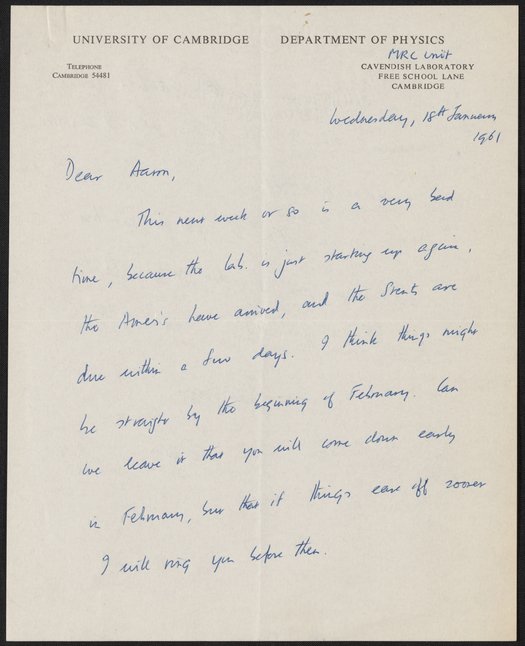 UNIVERSITY OF CAMBRIDGE DEPARTMENT OF PHYSICS
MRC Unit
TELEPHONE
CAMBRIDGE 54481
CAVENDISH LABORATORY
FREE SCHOOL LANE
CAMBRIDGE
Wednesday, 18th January
1961
Dear Aaron,
This next week or so is a very bad
time, because the lab. is just starting up again,
the Ames's have arrived, and the Stents are
due within a few days. I think things might
be straight by the beginning of February. Can
we leave it that you will come down early
in February, but that if things ease off sooner
I will ring you before then.